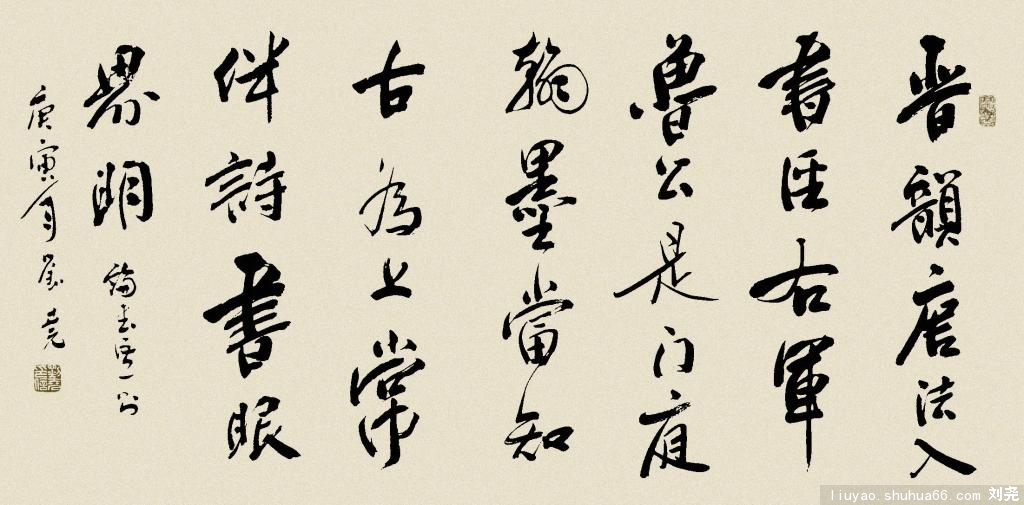 晋韻唐法入
書右軍
魯公是门庭
翰墨當知
古為上常
伴詩書眼
界明
論書語一則
庚寅劉堯
liuyao.shuhua66.com 刘尧